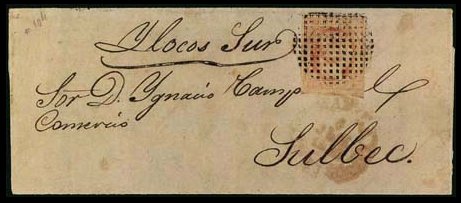 Ylocos Sur
Sor D. Ygnacio Camp
Comercio
Sulbec.